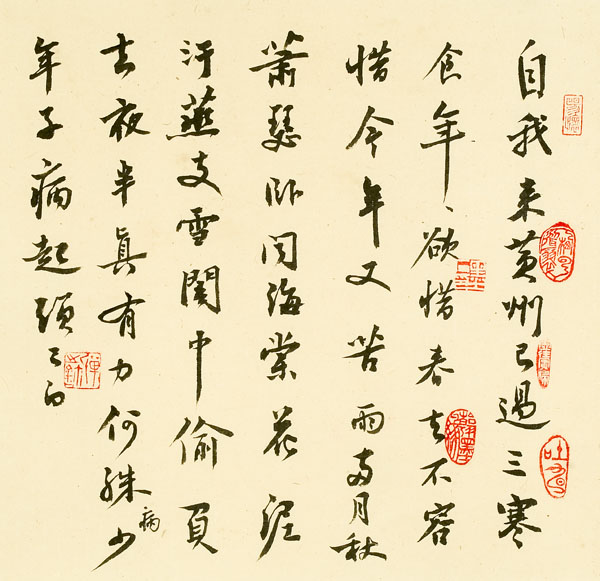 自我来黄州已過三寒
食年〻欲惜春去不容
惜今年又苦雨兩月秋
蕭瑟臥聞海棠花泥
汙燕支雪闇中偷負
去夜半真有力何殊病少
年子病起頭已白